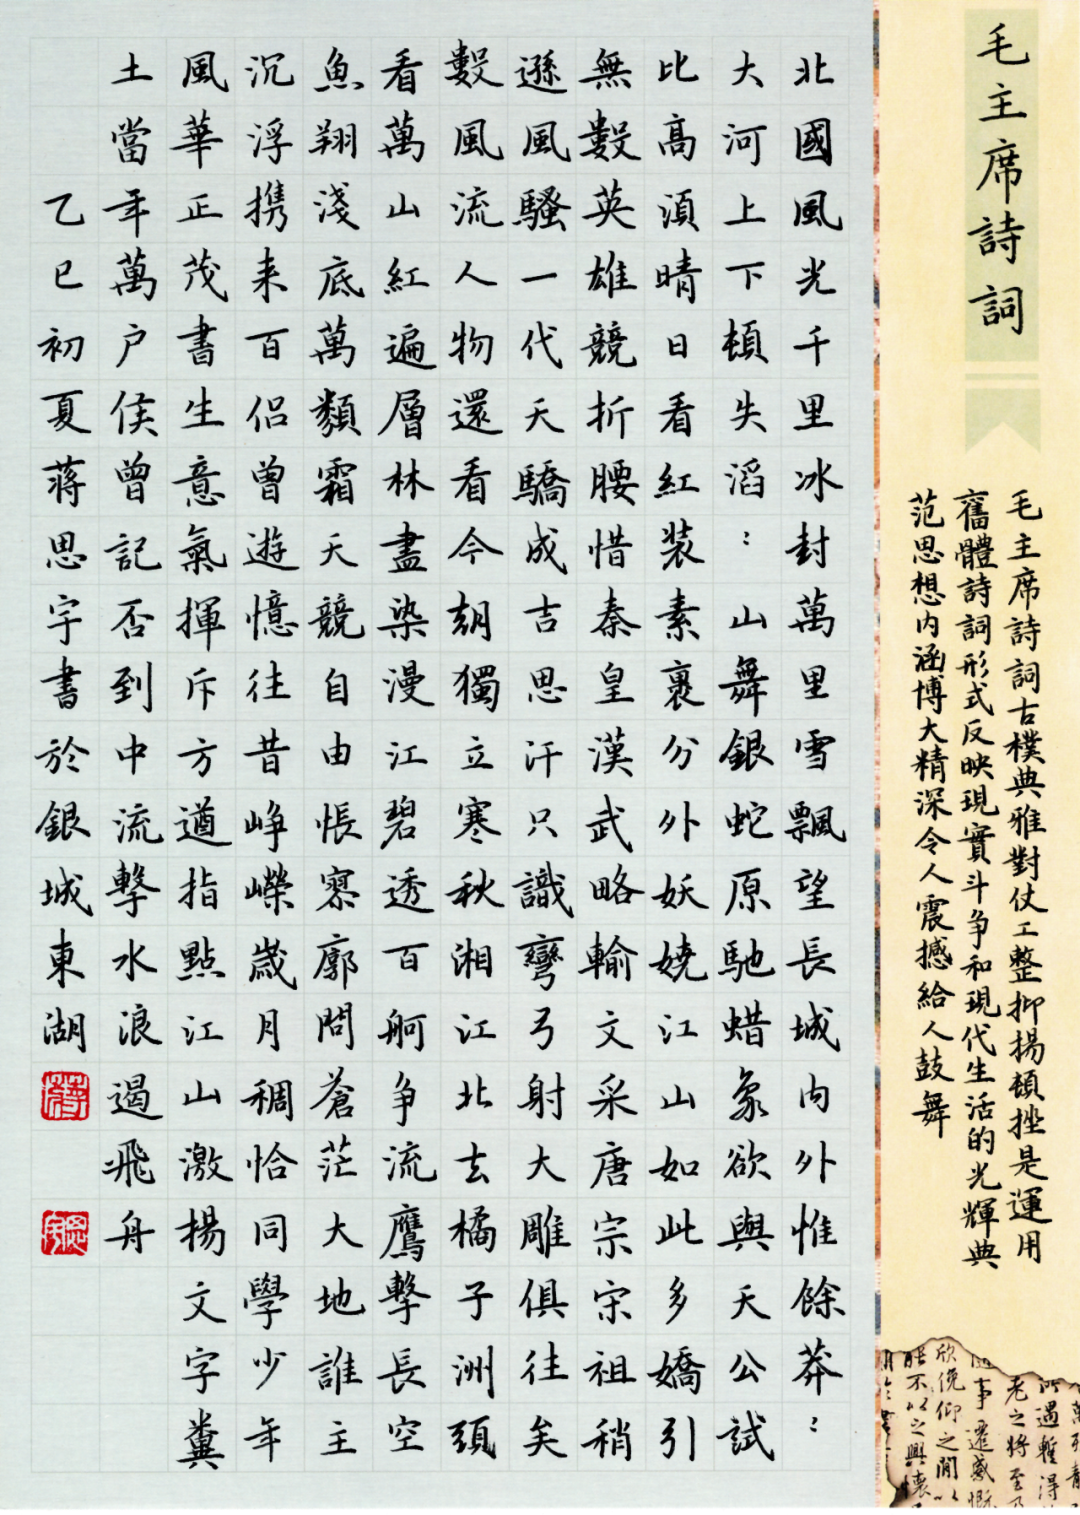 毛主席詩詞
毛主席詩詞古樸典雅對仗工整抑揚頓挫是運用
舊體詩詞形式反映現實斗争和現代生活的光輝典
范思想内涵博大精深令人震撼給人鼓舞
北國風光千里冰封萬里雪飄望長城内外惟餘莽:
大河上下頓失滔:山舞銀蛇原馳蜡象欲與天公試
比高須晴日看紅裝素裹分外妖嬈江山如此多嬌引
無數英雄競折腰惜秦皇漢武略輸文采唐宗宋祖稍
遜風騷一代天驕成吉思汗只識彎弓射大雕俱往矣
數風流人物還看今朝獨立寒秋湘江北去橘子洲頭
看萬山紅遍層林盡染漫江碧透百舸争流鷹擊長空
魚翔淺底萬類霜天競自由悵寥廓問蒼茫大地誰主
沉浮携来百侣曾遊憶往昔峥嶸歲月稠恰同學少年
風華正茂書生意氣揮斥方遒指點江山激揚文字糞
土當年萬户侯曾記否到中流擊水浪遏飛舟
乙巳初夏蔣思宇書於銀城東湖
蔣
思宇
遇暫得
老之將至
事遷感慨
欣俛仰之間以
不以之興懷